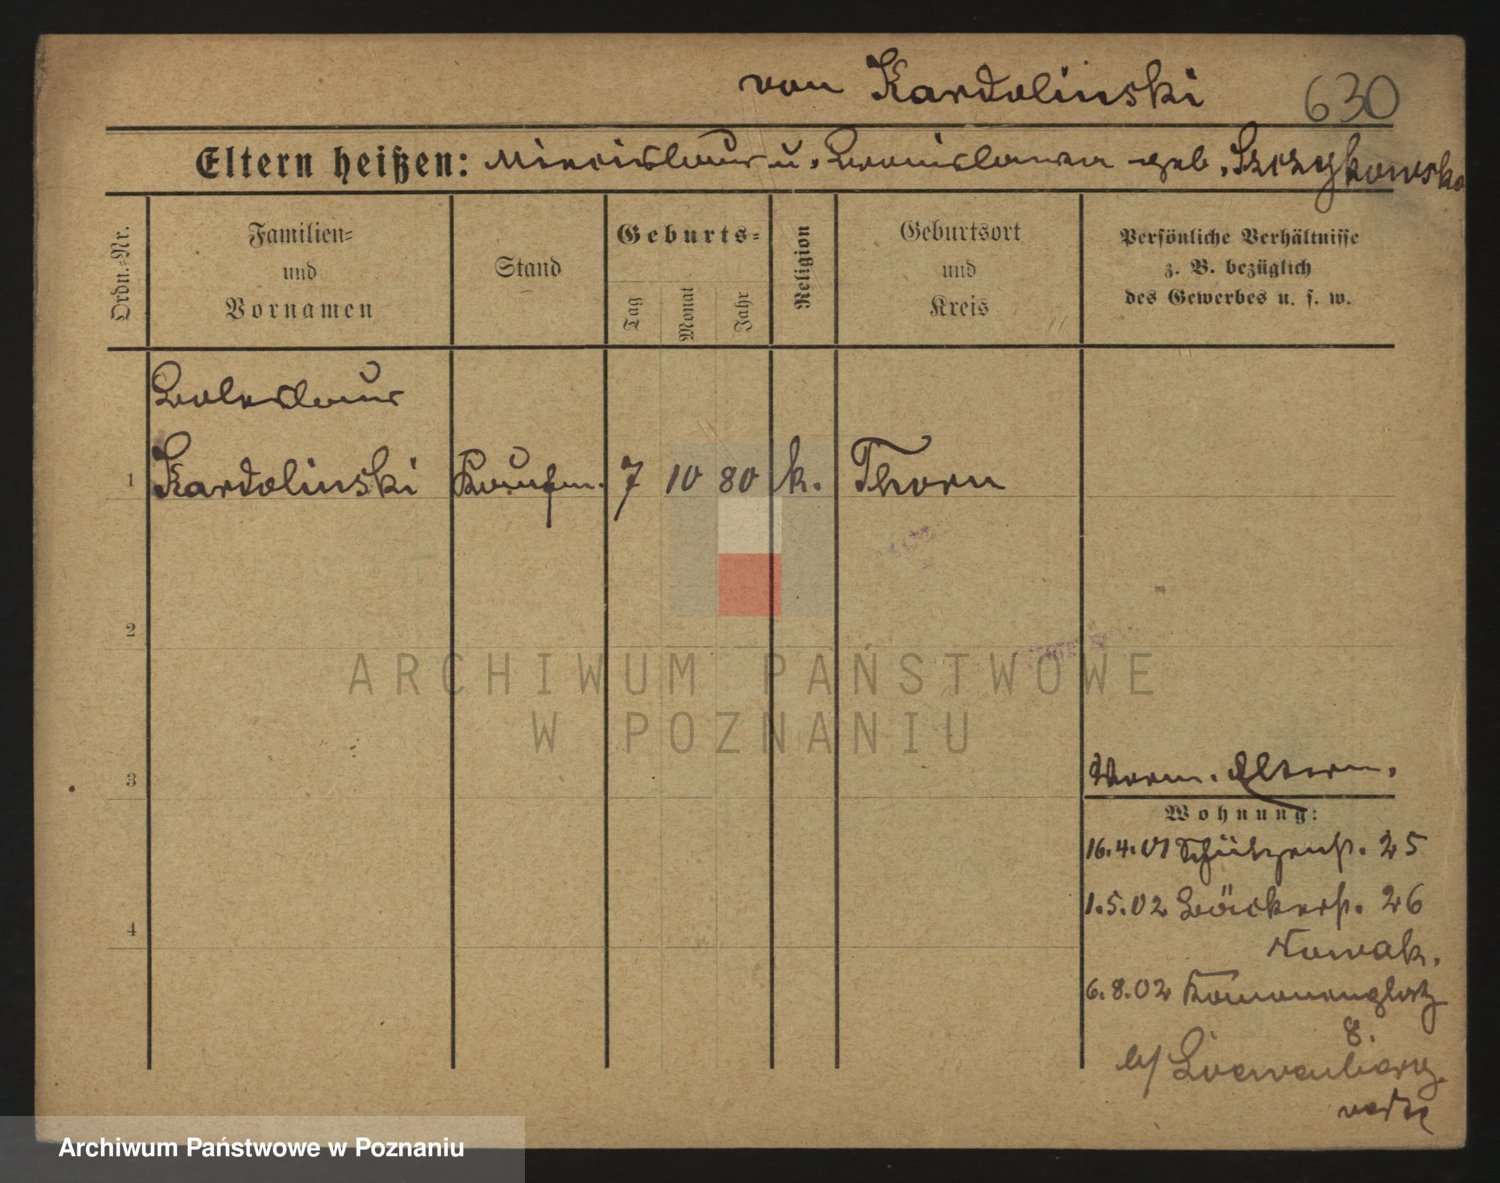 von Kardolinski 630
Eltern heißen: Miecislaus u. Bronislawa geb. Szczykowska
Ordn.-Nr.
Familien-
und
Vornamen
Stand
Geburts-
Tag
Monat
Jahr
Religion
Geburtsort
und
Kreis
Persönliche Verhältnisse
z. B. bezüglich
des Gewerbes u. s. w.
Boleslaus
1 Kardolinski Kaufm. 7 10 80 k. Thorn
2
3
4
Vorm. Eltern.
Wohnung:
16.4.01 Schützenstr. 25
1.5.02 Bäckerstr. 26
Nowak.
6.8.02 Kanonenplatz
8.
b/ Loewenberg
ARCHIWUM PAŃSTWOWE
W POZNANIU
Archiwum Państwowe w Poznaniu